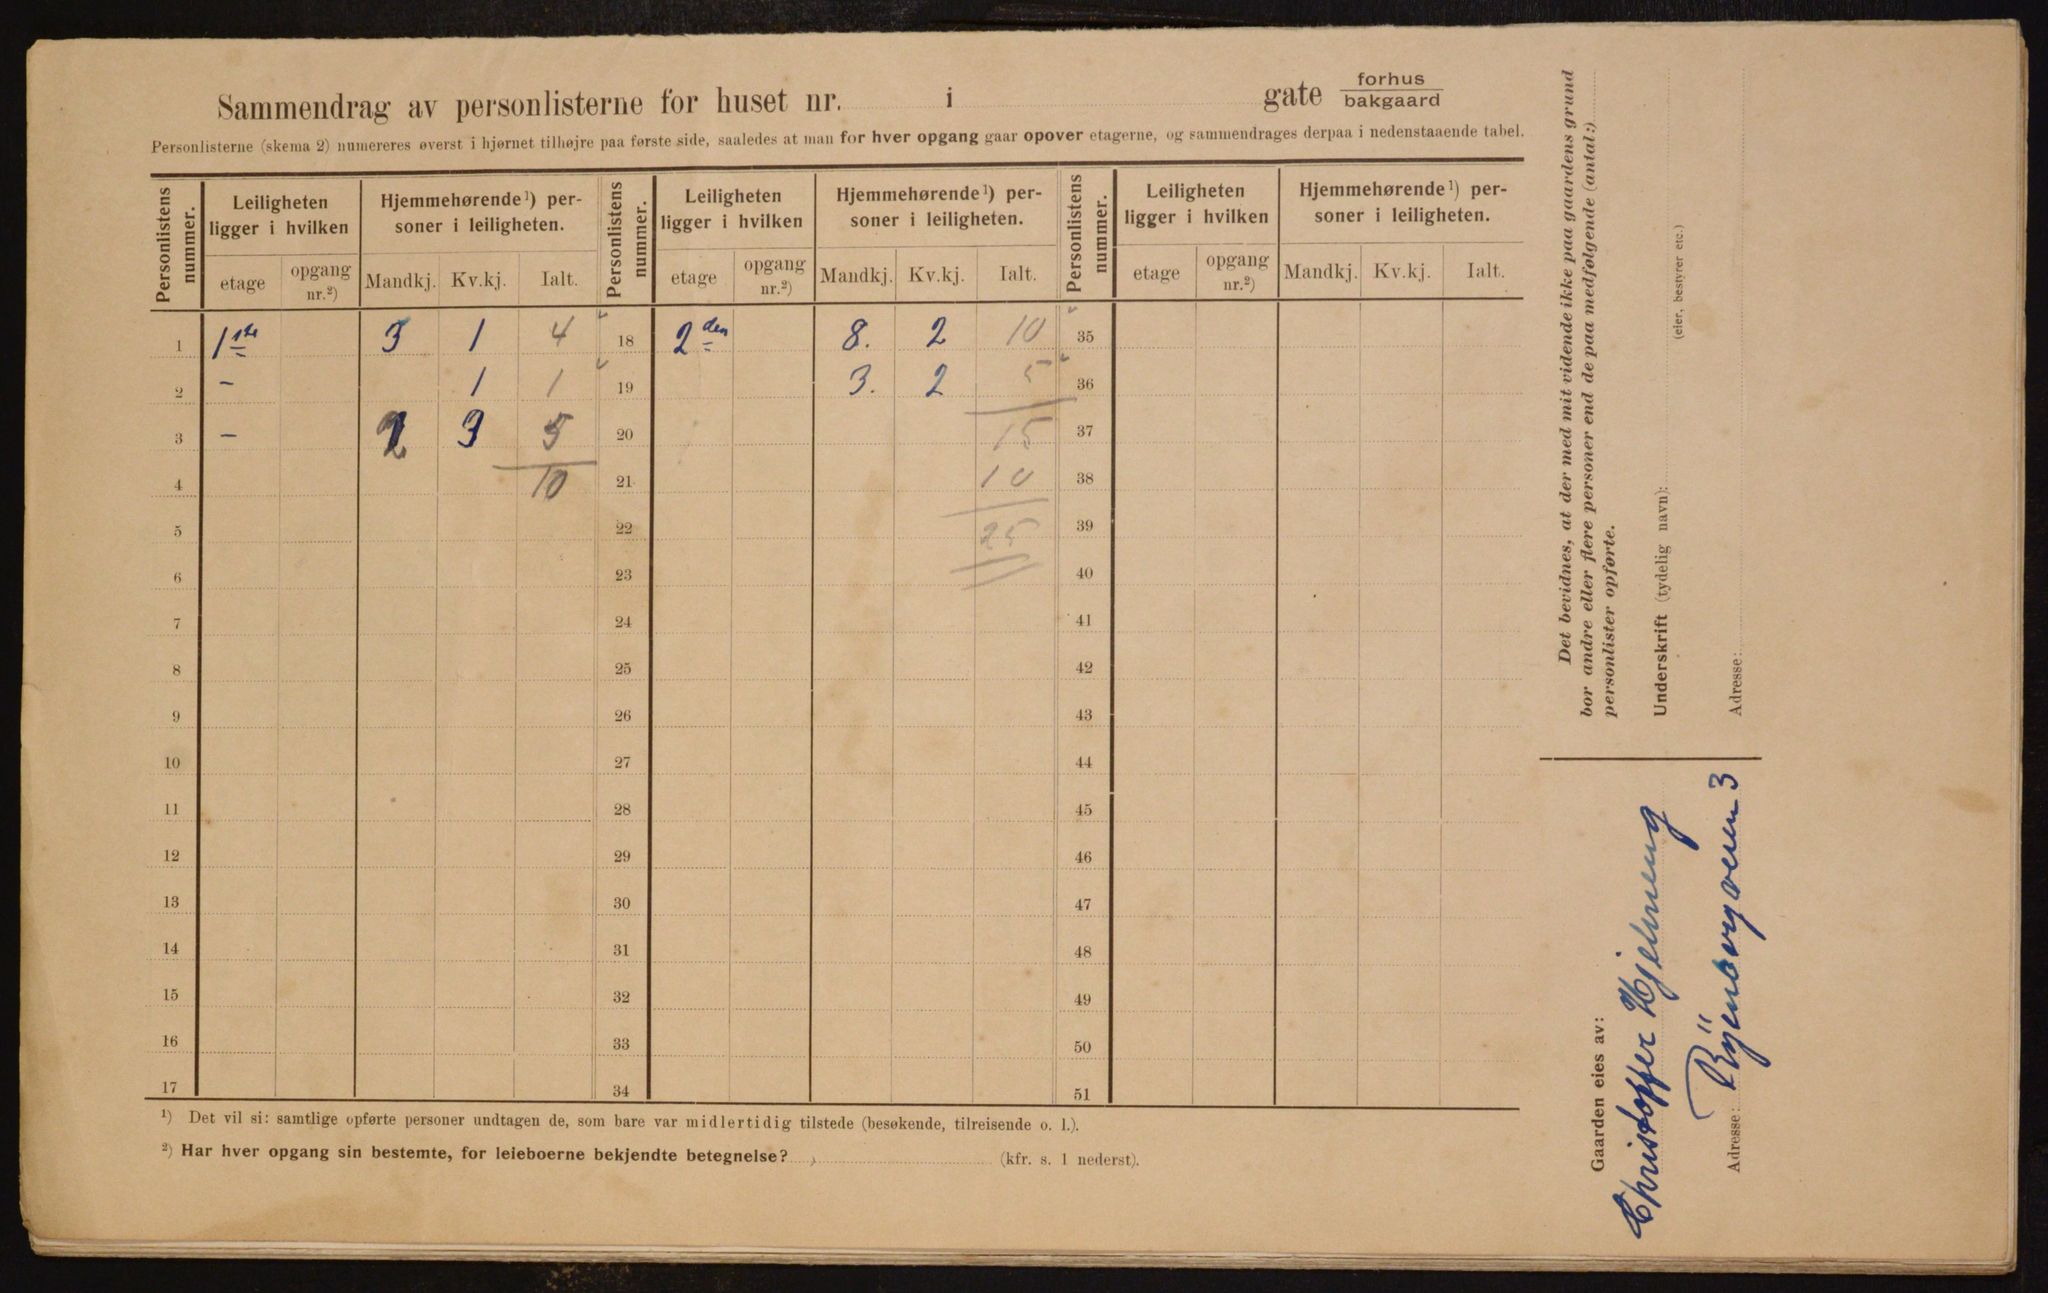 Sammendrag av personlisterne for huset nr. i gate forhus
bakgaard
Personlisterne (skema 2) numereres øverst i hjørnet tilhøjre paa første side, saaledes at man for hver opgang gaar opover etagerne, og sammendrages derpaa i nedenstaaende tabel.
Personlistens nummer. Leiligheten ligger i hvilken Hjemmehørende¹) personer i leiligheten. Personlistens nummer. Leiligheten ligger i hvilken Hjemmehørende¹) personer i leiligheten. Personlistens nummer. Leiligheten ligger i hvilken Hjemmehørende¹) personer i leiligheten.
etage opgang nr.²) Mandkj. Kv.kj. Ialt. etage opgang nr.²) Mandkj. Kv.kj. Ialt. etage opgang nr.²) Mandkj. Kv.kj. Ialt.
1 1ste 3 1 4 18 2den 8. 2 10 35
2 – 1 1 19 3. 2 5 36
3 – 2 3 5 20 15 37
4 10 21 10 38
5 22 25 39
6 23 40
7 24 41
8 25 42
9 26 43
10 27 44
11 28 45
12 29 46
13 30 47
14 31 48
15 32 49
16 33 50
17 34 51
¹) Det vil si: samtlige opførte personer undtagen de, som bare var midlertidig tilstede (besøkende, tilreisende o. l.).
²) Har hver opgang sin bestemte, for leieboerne bekjendte betegnelse? (kfr. s. 1 nederst).
Det bevidnes, at der med mit vidende ikke paa gaardens grund
bor andre eller flere personer end de paa medfølgende (antal:)
personlister opførte.
Underskrift (tydelig navn):
(eier, bestyrer etc.)
Adresse:
Gaarden eies av:
Christoffer
Adresse: 3